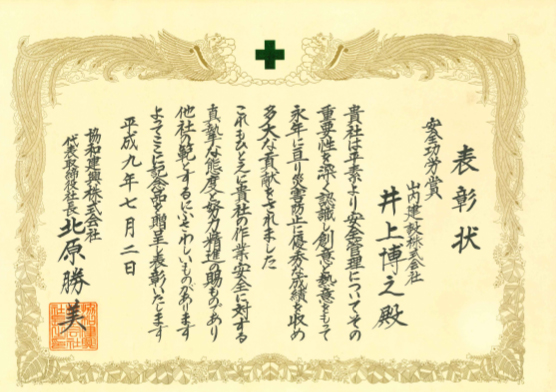 表彰状
安全功労賞
山内建設株式会社
井上博之殿
貴社は平素より安全管理についてその
重要性を深く認識し創意と熱意をもって
永年に亘り災害防止に優秀な成績を収め
多大な貢献をされました
これもひとえに貴社の作業安全に対する
真摯な態度と努力精進の賜ものであり
他社の範とするにふさわしいものがあります
よってここに記念品を贈呈し表彰いたします
平成九年七月二日
協和建興株式会社
代表取締役社長 北原勝美